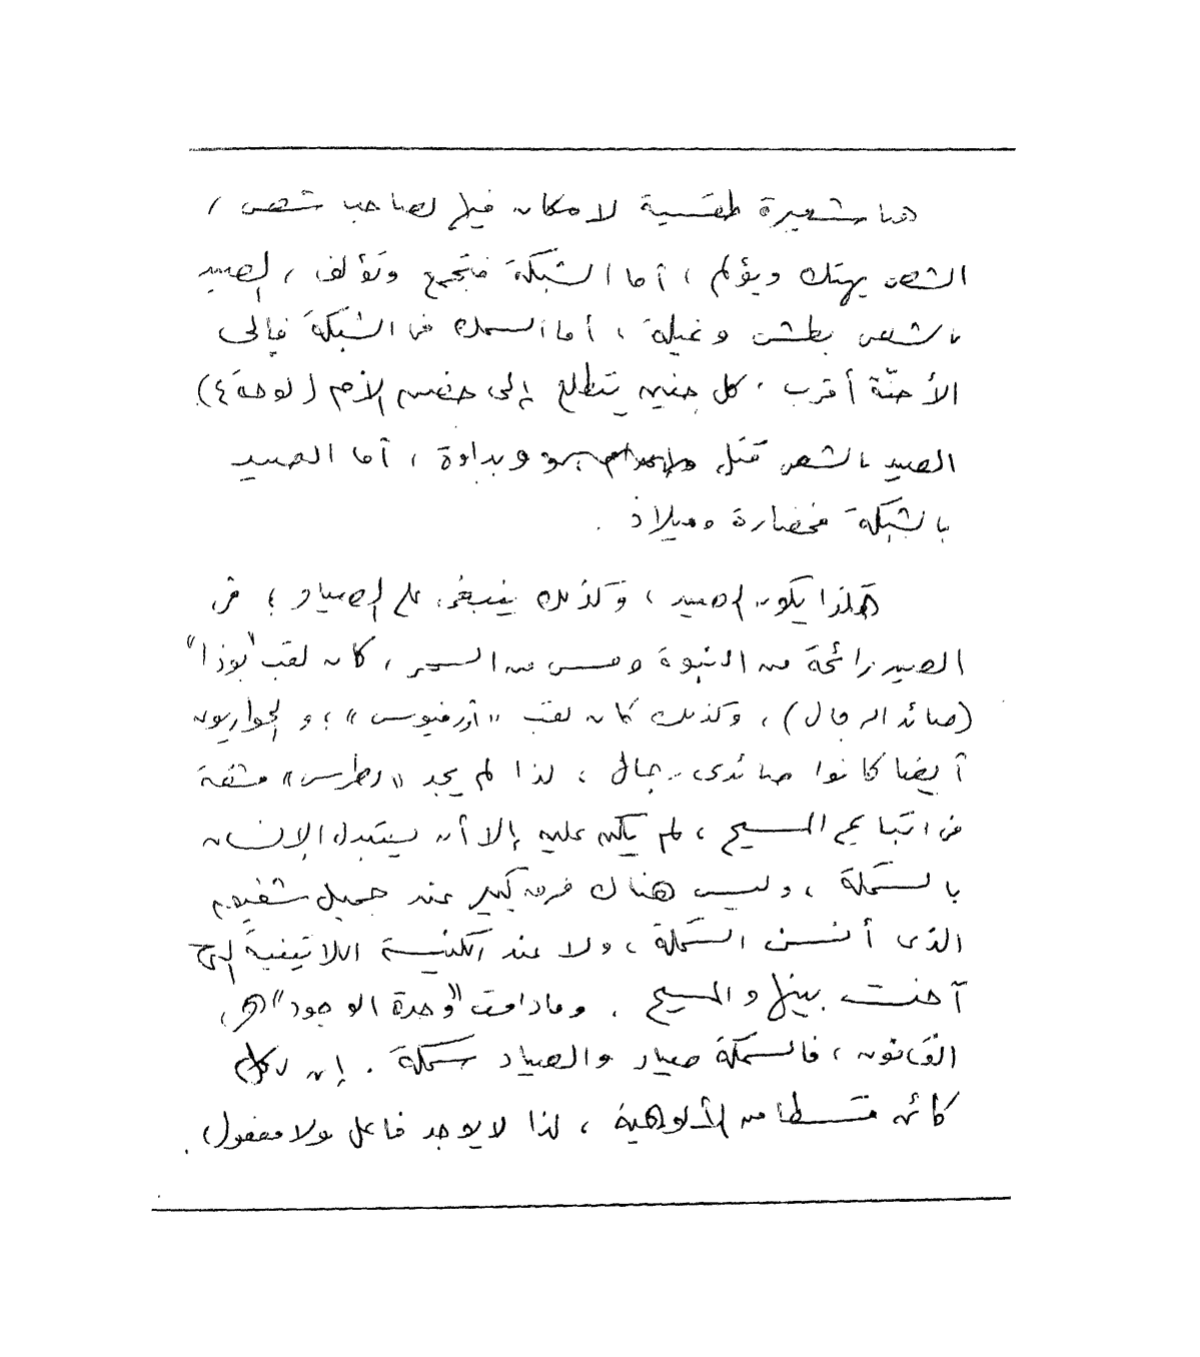 هنا شعيرة طقسية لا مكان فيها لصاحب شص ،
الشص يهتك ويؤلم ، أما الشبكة فتجمع وتؤلف ، الصيد
بالشص بطش وغيلة ، أما السمك في الشبكة فإلى
الأجنّة أقرب ، كل جنين يتطلع إلى حضن الأم (لوحة ٤) .
الصيد بالشص قتل وبداوة ، أما الصيد
بالشبكة فحضارة وميلاد .
هكذا يكون الصيد ، وكذلك ينبغي على الصياد ؛ في
الصيد رائحة من النبوة ومس من السحر ، كان لقب "بوذا"
(صائد الرجال) ، وكذلك كان لقب «أورفيوس» ؛ والحواريون
أيضا كانوا صائدى رجال ، لذا لم يجد «بطرس» مشقة
في اتباع المسيح ، لم يكن عليه إلا أن يستبدل الإنسان
بالسمكة ، وليس هناك فرق كبير عند جميل شفيق
الذى أنسن السمكة ، ولا عند الكنيسة اللاتينية التي
آخت بينها والمسيح . ومادامت "وحدة الوجود" هي
القانون ، فالسمكة صياد والصياد سمكة . إن لكل
كائن قسطا من الألوهية ، لذا لا يوجد فاعل ولا مفعول .